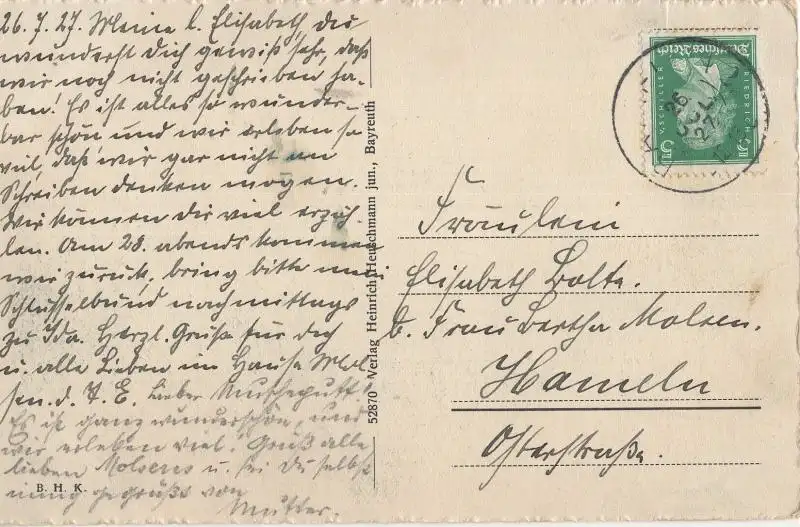 26. 7. 27. Meine l. Elisabeth, du
wunderst Dich gewiß sehr, daß
wir noch nicht geschrieben ha-
ben! Es ist alles so wunder-
bar schön und wir erleben so
viel, daß wir gar nicht an
Schreiben denken mögen.
Wir können Dir viel erzäh-
len. Am 28. abends kommen
wir zurück, bring bitte mein
Schlüsselbund nachmittags
zu Ida. Herzl. Grüße für Dich
u. alle Lieben im Hause Mol-
sen. d. T. E. Lieber
Es ist ganz wunderschön, und
wir erleben viel. Grüß alle
lieben Molsens u. sei Du selbst
innig gegrüßt von
Mutter.
B. H. K.
52870 Verlag Heinrich Heuschmann jun., Bayreuth
Deutsches Reich
FRIEDRICH
V. SCHILLER
5
5
26
JUL
27
Fräulein
Elisabeth Bolte.
b. Frau Bertha Molsen.
Hameln
Osterstraße.